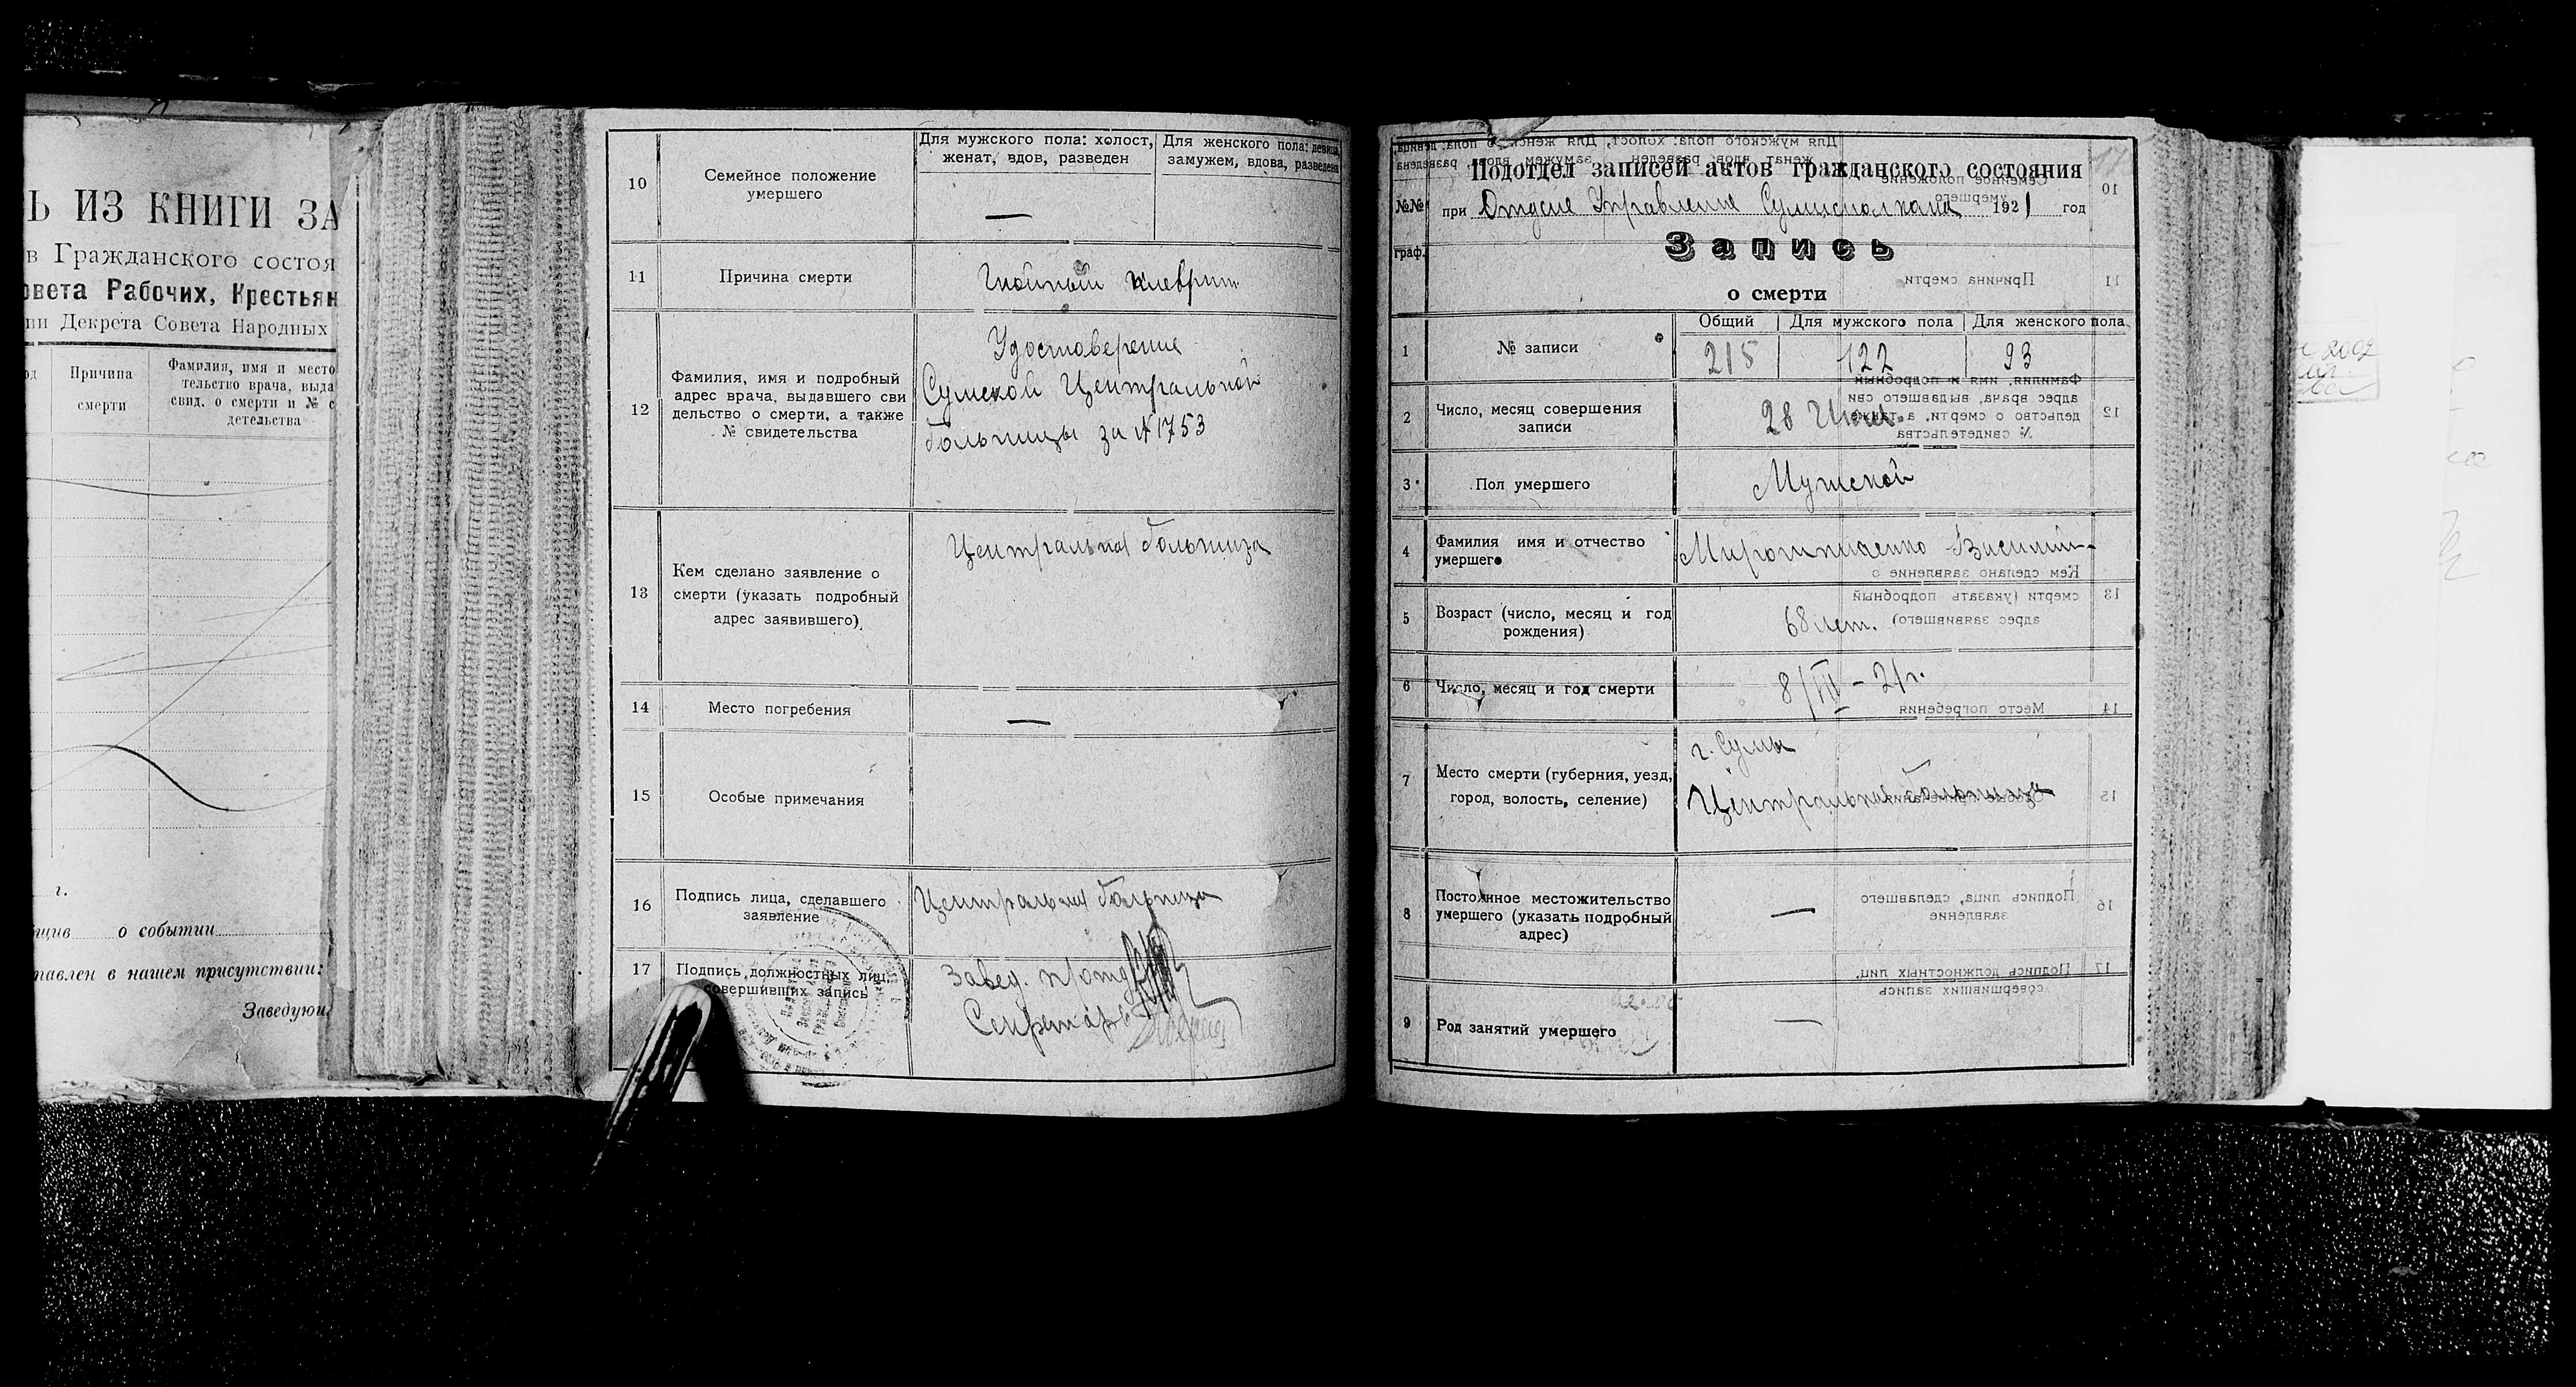 Ь ИЗ КНИГИ ЗА
в Гражданского состоя
овета Рабочих, Крестьян
ии Декрета Совета Народных
Причина
смерти
Фамилия, имя и место
тельство врача, выда
свид. о смерти и № с
детельства
г.
щив о событии
тавлен в нашем присутствии:
Заведующ
10
Семейное положение
умершего
Для мужского пола: холост,
женат, вдов, разведен
Для женского пола: девица,
замужем, вдова, разведена
—
11
Причина смерти
Гнойный плеврит
12
Фамилия, имя и подробный
адрес врача, выдавшего сви
дельство о смерти, а также
№ свидетельства
Удостоверение
Сумской Центральной
больницы за № 1753
13
Кем сделано заявление о
смерти (указать подробный
адрес заявившего)
Центральная больница
14
Место погребения
—
15
Особые примечания
16
Подпись лица, сделавшего
заявление
Центральная больница
17
Подпись должностных лиц,
совершивших запись
Завед. п/отд
Секретарь
Подотдел записей актов гражданского состояния
№№
граф.
при Отделе Управления 1921 год
Запись
о смерти
1
№ записи
Общий
Для мужского пола
Для женского пола
215
122
93
2
Число, месяц совершения
записи
28
3
Пол умершего
Мужской
4
Фамилия имя и отчество
умершего
Мирошниченко Василий
5
Возраст (число, месяц и год
рождения)
68 лет.
6
Число, месяц и год смерти
8/VII – 21г.
7
Место смерти (губерния, уезд,
город, волость, селение)
г. Сумы
Центральная больница
8
Постоянное местожительство
умершего (указать подробный
адрес)
—
9
Род занятий умершего
—